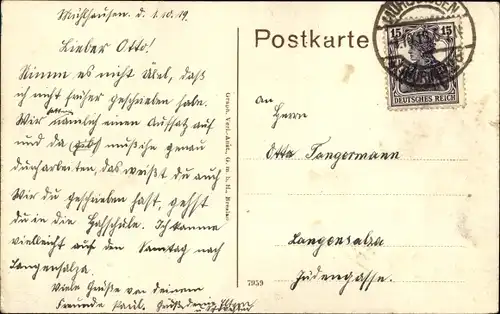 Mühlhausen, d. 1.10.19.
Lieber Otto!
Nimm es nicht übel, daß
ich nicht früher geschrieben habe.
Wir hatten nämlich einen Aufsatz auf
und da mußte ich genau
durcharbeiten, das weißt du auch
Wie du geschrieben hast, gehst
du in die Ich komme
vielleicht auf den Samstag nach
Langensalza.
Viele Grüße von deinem
Freunde Paul. Grüße deine Eltern
Postkarte
15 15
DEUTSCHES REICH
An
Herrn
Otto Tangermann
Langensalza
Jüdengasse.
Graph. Verl.-Anst., G. m. b. H., Breslau.
7959